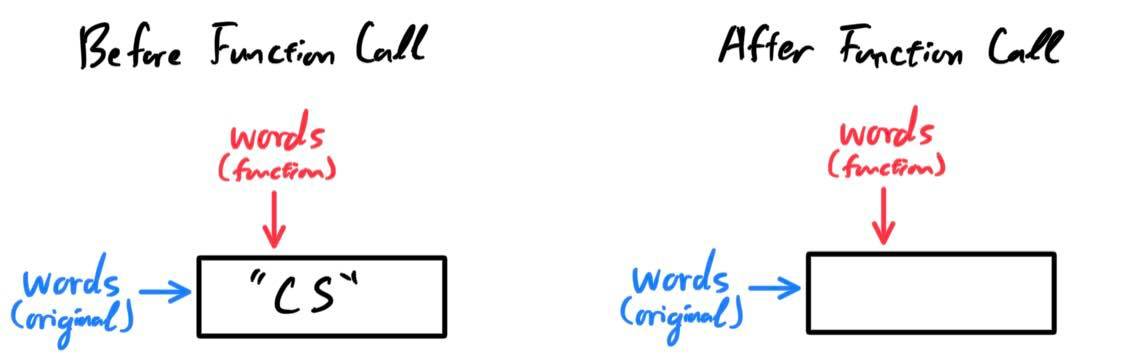 Before Function Call
words
(function)
words
(original)
"CS"
After Function Call
words
(function)
words
(original)